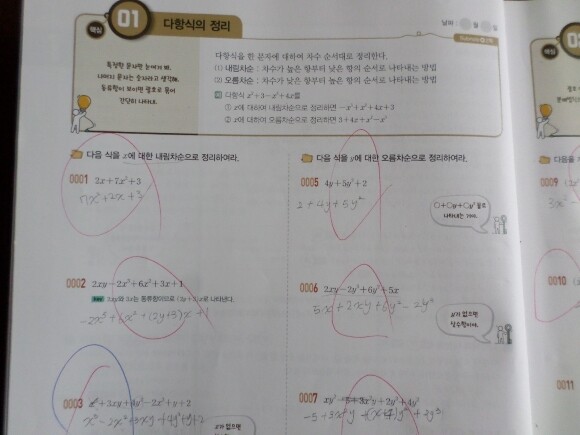 핵심 01 다항식의 정리
날짜 : 월 일
특정한 문자만 눈여겨 봐.
나머지 문자는 숫자라고 생각해.
동류항이 보이면 괄호로 묶어
간단히 나타내.
다항식을 한 문자에 대하여 차수 순서대로 정리한다.
(1) 내림차순 : 차수가 높은 항부터 낮은 항의 순서로 나타내는 방법
(2) 오름차순 : 차수가 낮은 항부터 높은 항의 순서로 나타내는 방법
다항식 x²+3-x³+4x를
① x에 대하여 내림차순으로 정리하면 -x³+x²+4x+3
② x에 대하여 오름차순으로 정리하면 3+4x+x²-x³
다음 식을 x에 대한 내림차순으로 정리하여라.
0001 2x+7x²+3
7x²+2x+3
0002 2xy-2x³+6x²+3x+1
2xy와 3x는 동류항이므로 (2y+3)x로 나타낸다.
-2x³+6x²+(2y+3)x+1
0003
다음 식을 y에 대한 오름차순으로 정리하여라.
0005 4y+5y²+2
2+4y+5y²
○+○y+○y² 꼴로
나타내는 거야.
0006 2xy-2y³+6y²+5x
5x+2xy+6y²-2y³
y가 없으면
상수항이야.
0007
다음을
0009
0010
0011